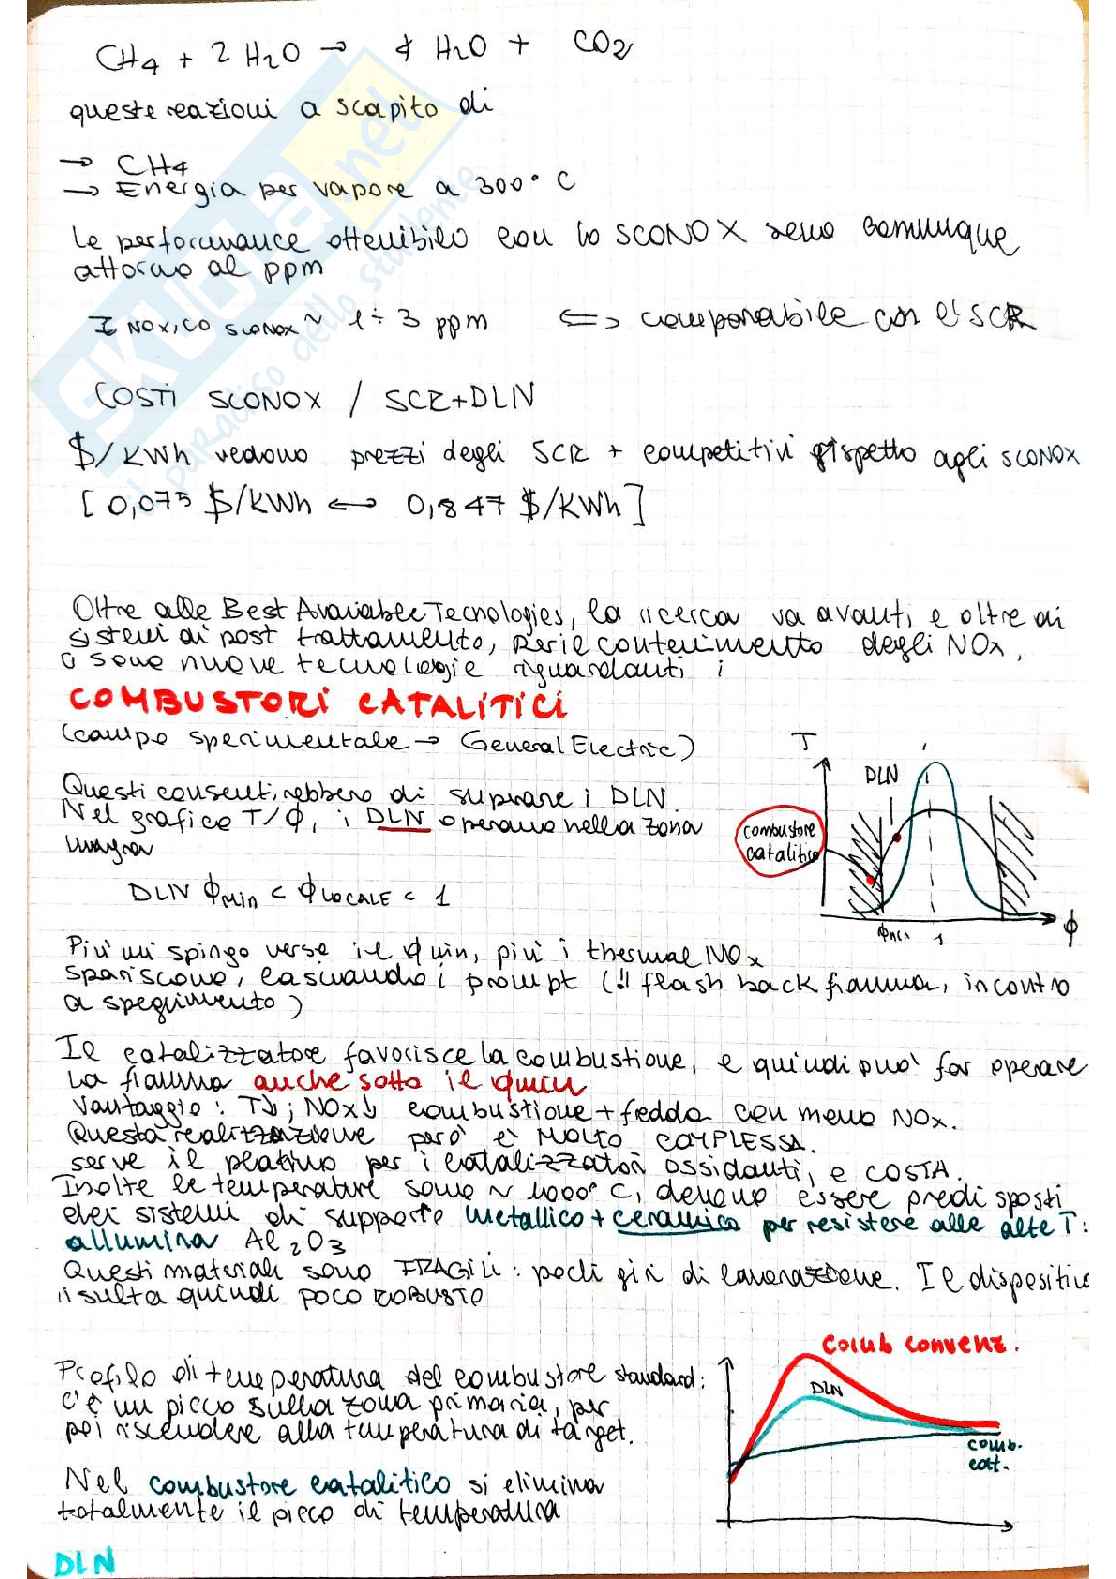 CH4 + 2 H2O → 4 H2O + CO2
queste reazioni a scapito di
→ CH4
→ Energia per vapore a 300° C
Le performance ottenibilo con lo SCONOX sono comunque
attorno al ppm
I NOx, CO SCONOX ~ 1 ÷ 3 ppm ⇔ comparabile con l'SCR
COSTI SCONOX / SCR+DLN
$/KWh vedono prezzi degli SCR + competitivi rispetto agli SCONOX
[ 0,075 $/KWh ↔ 0,847 $/KWh ]
Oltre alle Best Avaiable Tecnologies, la ricerca va avanti e oltre ai
sistemi di post trattamento, per il contenimento degli NOx,
ci sono nuove tecnologie riguardanti i
COMBUSTORI CATALITICI
(campo sperimentale → General Electric)
Questi consentirebbero di superare i DLN.
Nel grafico T/ϕ, i DLN operano nella zona
magra
DLN ϕMin < ϕLOCALE < 1
T
DLN
combustore
catalitico
1
ϕ
Più mi spingo verso il ϕmin, più i thermal NOx
spariscono, lasciando i prompt (!! flash back fiamma, incontro
a spegnimento)
Il catalizzatore favorisce la combustione, e quindi può far operare
la fiamma anche sotto il ϕmin
Vantaggio: T↓; NOx↓ combustione + fredda con meno NOx.
Questa realizzazione però è MOLTO COMPLESSA.
serve il platino per i catalizzatori ossidanti, e COSTA.
Inolte le temperature sono ~ 1000° C, devono essere predisposti
dei sistemi di supporto metallico + ceramico per resistere alle alte T:
allumina Al2O3
Questi materiali sono FRAGILI: pochi giri di lavorazione. Il dispositivo
risulta quindi POCO ROBUSTO
Profilo di temperatura del combustore standard:
c'è un picco sulla zona primaria, per
poi riscendere alla temperatura di target.
Comb convenz.
DLN
comb.
cat.
Nel combustore catalitico si elimina
totalmente il picco di temperatura
DLN
SKUOLA.net
il paradiso dello studente